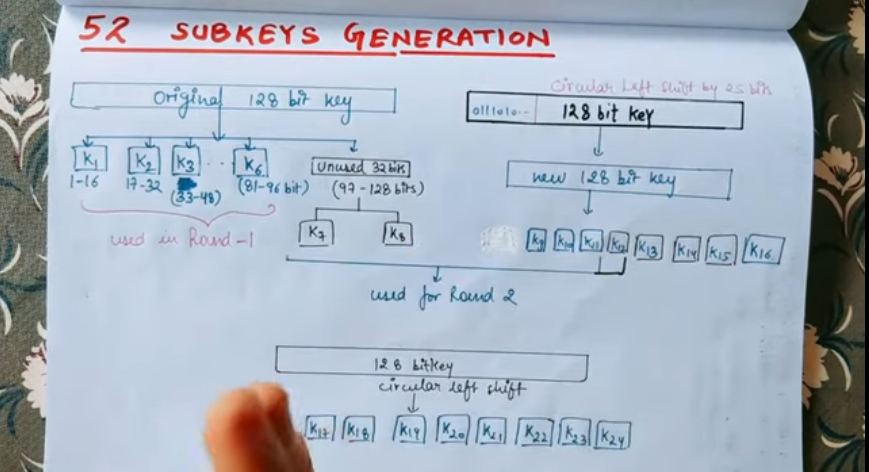 52 SUBKEYS GENERATION
Original 128 bit key
K1 K2 K3 .. K6
1-16 17-32 (33-48) (81-96 bit)
used in Round-1
Unused 32 bits
(97-128 bits)
K7 K8
Circular Left Shift by 25 bits
0111010... 128 bit key
new 128 bit key
K9 K10 K11 K12 K13 K14 K15 K16
used for Round 2
128 bitkey
circular left shift
K17 K18 K19 K20 K21 K22 K23 K24